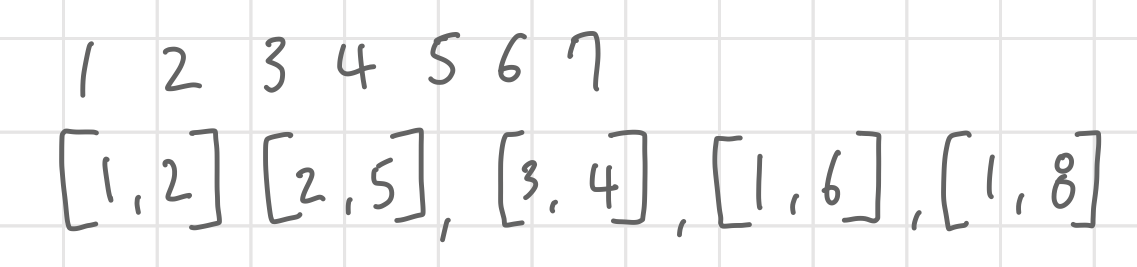 1 2 3 4 5 6 7
[1,2] [2,5], [3,4], [1,6], [1,8]